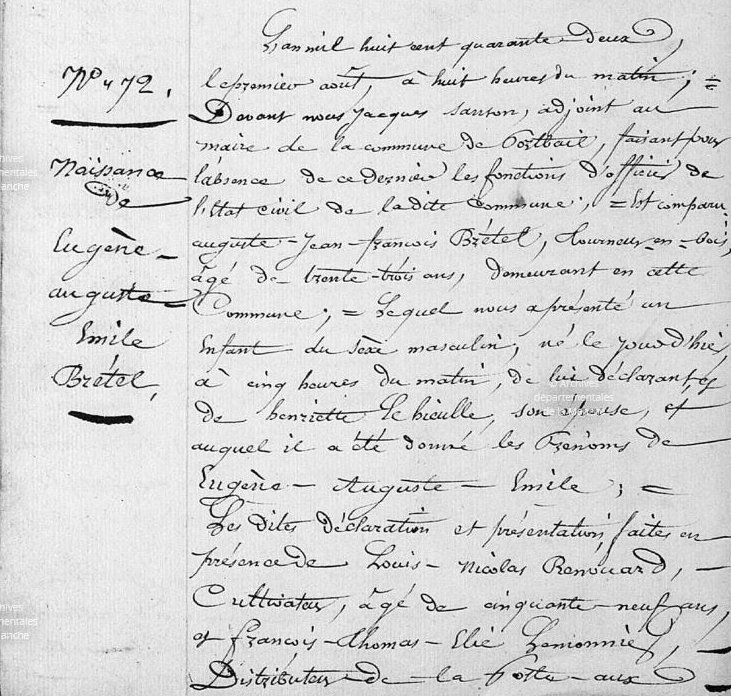 L'an mil huit cent quarante-deux,
le premier août, à huit heures du matin; =
Devant nous Jacques Sanson, adjoint au
maire de la commune de Portbail, faisant pour
l'absence de ce dernier les fonctions d'officier de
l'Etat civil de la dite Commune; = Est comparu
auguste-Jean-françois Brétel, tourneur-en-bois,
âgé de trente-trois ans, demeurant en cette
Commune; = Lequel nous a présenté un
Enfant du sexe masculin, né le jour d'hier,
à cinq heures du matin, de lui déclarant, et
de henriette Le hieulle, son épouse, et
auquel il a été donné les Prénoms de
Eugène - Auguste - Emile; =
Les dites déclaration et présentation, faites en
présence de Louis-Nicolas Renouard,
Cultivateur, âgé de cinquante-neuf ans,
et françois-thomas-Elie Lemonnier,
Distributeur de la Poste aux
N° 72.
Naissance
de
Eugène-
auguste
Emile
Brétel,
Archives
départementales